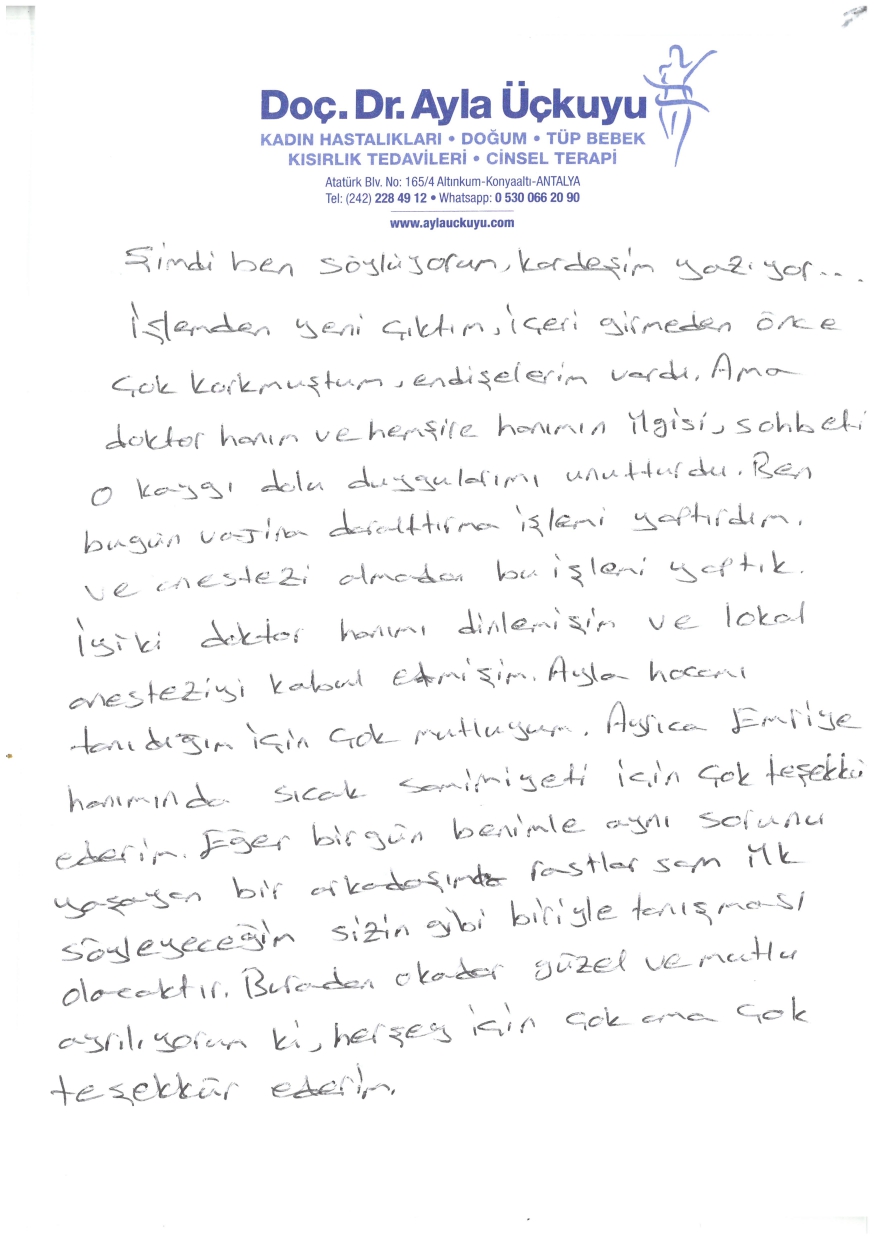 Doç. Dr. Ayla Üçkuyu
KADIN HASTALIKLARI • DOĞUM • TÜP BEBEK
KISIRLIK TEDAVİLERİ • CİNSEL TERAPİ
Atatürk Blv. No: 165/4 Altınkum-Konyaaltı-ANTALYA
Tel: (242) 228 49 12 • Whatsapp: 0 530 066 20 90
www.aylauckuyu.com
Şimdi ben söylüyorum, kardeşim yazıyor...
İşlemden yeni çıktım, içeri girmeden önce
çok korkmuştum, endişelerim vardı. Ama
doktor hanım ve hemşire hanımın ilgisi, sohbeti
o kaygı dolu duygularımı unutturdu. Ben
bugün vajina daralttırma işlemi yaptırdım.
ve anestezi almadan bu işlemi yaptık.
İyiki doktor hanımı dinlemişim ve lokal
anesteziyi kabul etmişim. Ayla hocamı
tanıdığım için çok mutluyum. Ayrıca Emriye
hanımında sıcak samimiyeti için çok teşekkü
ederim. Eğer birgün benimle aynı sorunu
yaşayan bir arkadaşımda rastlar sam ilk
söyleyeceğim sizin gibi biriyle tanışması
olacaktır. Buradan okadar güzel ve mutlu
ayrılıyorum ki, herşey için çok ama çok
teşekkür ederim.